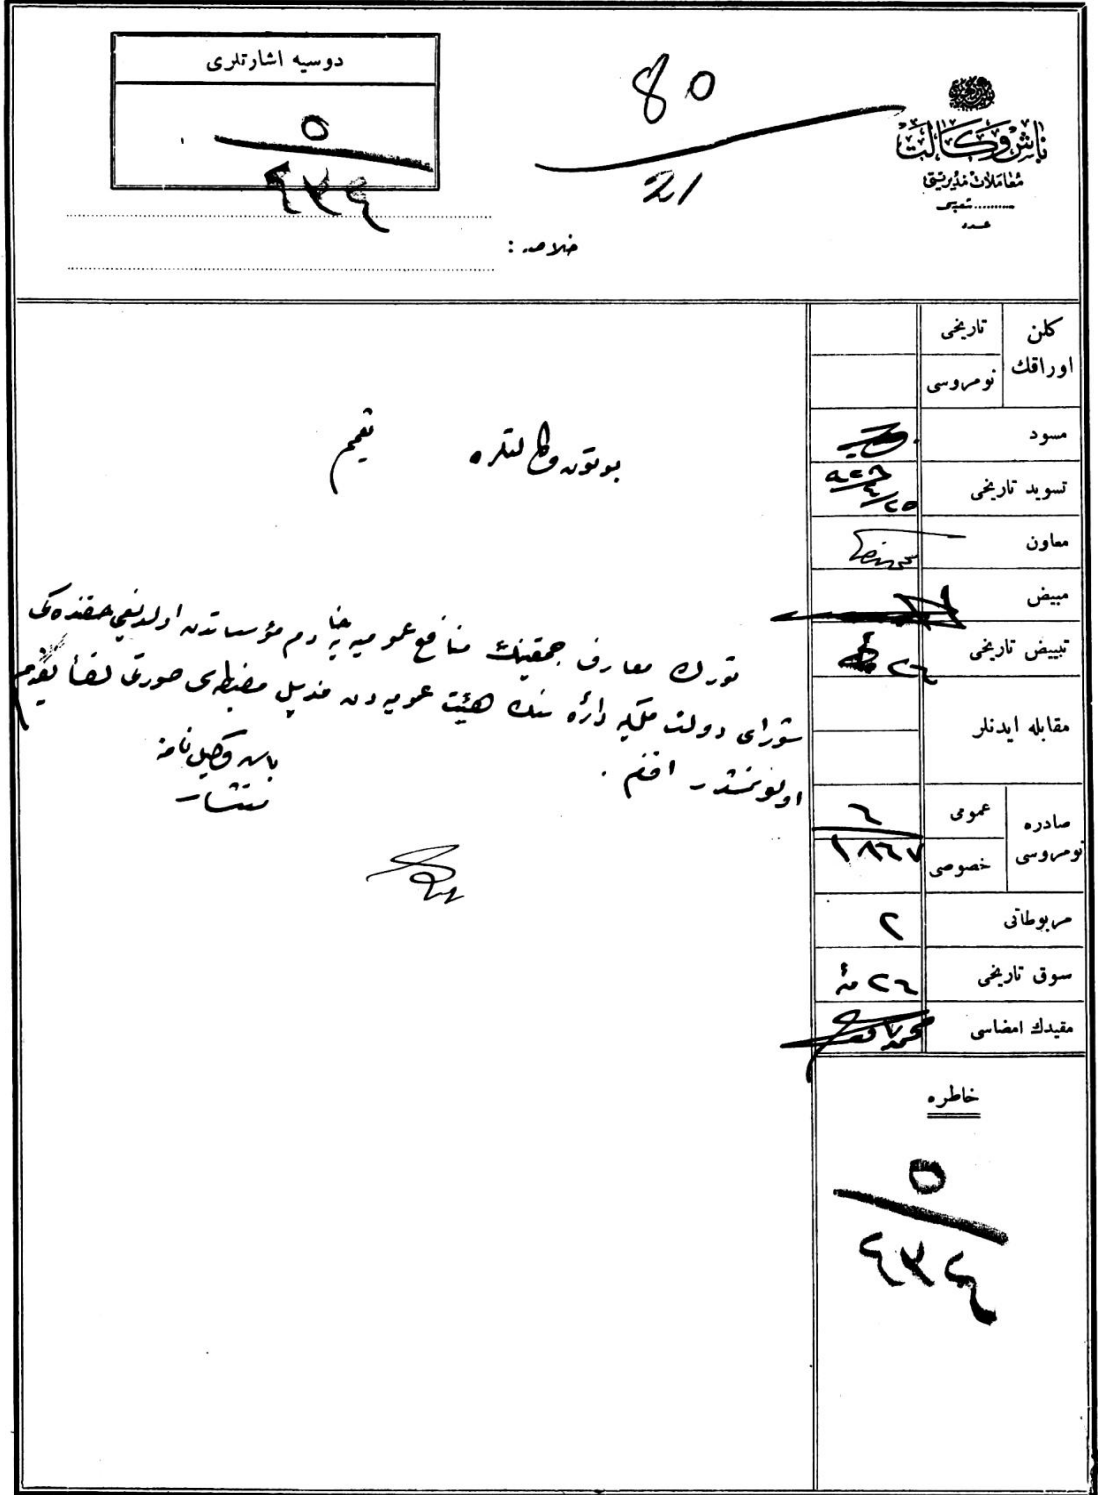 دوسیه اشارتلری
٥
٨٠
21
باش وكالت
معاملات مدیریتی
.......... شعبه‌سی
عدد
خلاصه :
كلن اوراقك
تاریخی
نومروسی
مسود
تسوید تاریخی
٢٥/٤/٩٢٦
معاون
مبیض
تبییض تاریخی
٢٦
مقابله ایدنلر
صادره نومروسی
عمومی
٦
خصوصی
١٨٦٧
مربوطاتی
٢
سوق تاریخی
٢٦ منه
مقیدك امضاسی
خاطره
٥
بوتون وكالتلره
تعمیم
تورك معارف جمعیتنك منافع عمومیه‌یه خادم مؤسساتدن اولدیغی حقنده‌كی
شورای دولت ملكیه دائره‌سنك هیئت عمومیه‌دن مذیل مضبطه‌سی صورتی لفاً تقدیم
اولونمشدر افندم .
باش وكیل نامنه
مستشار